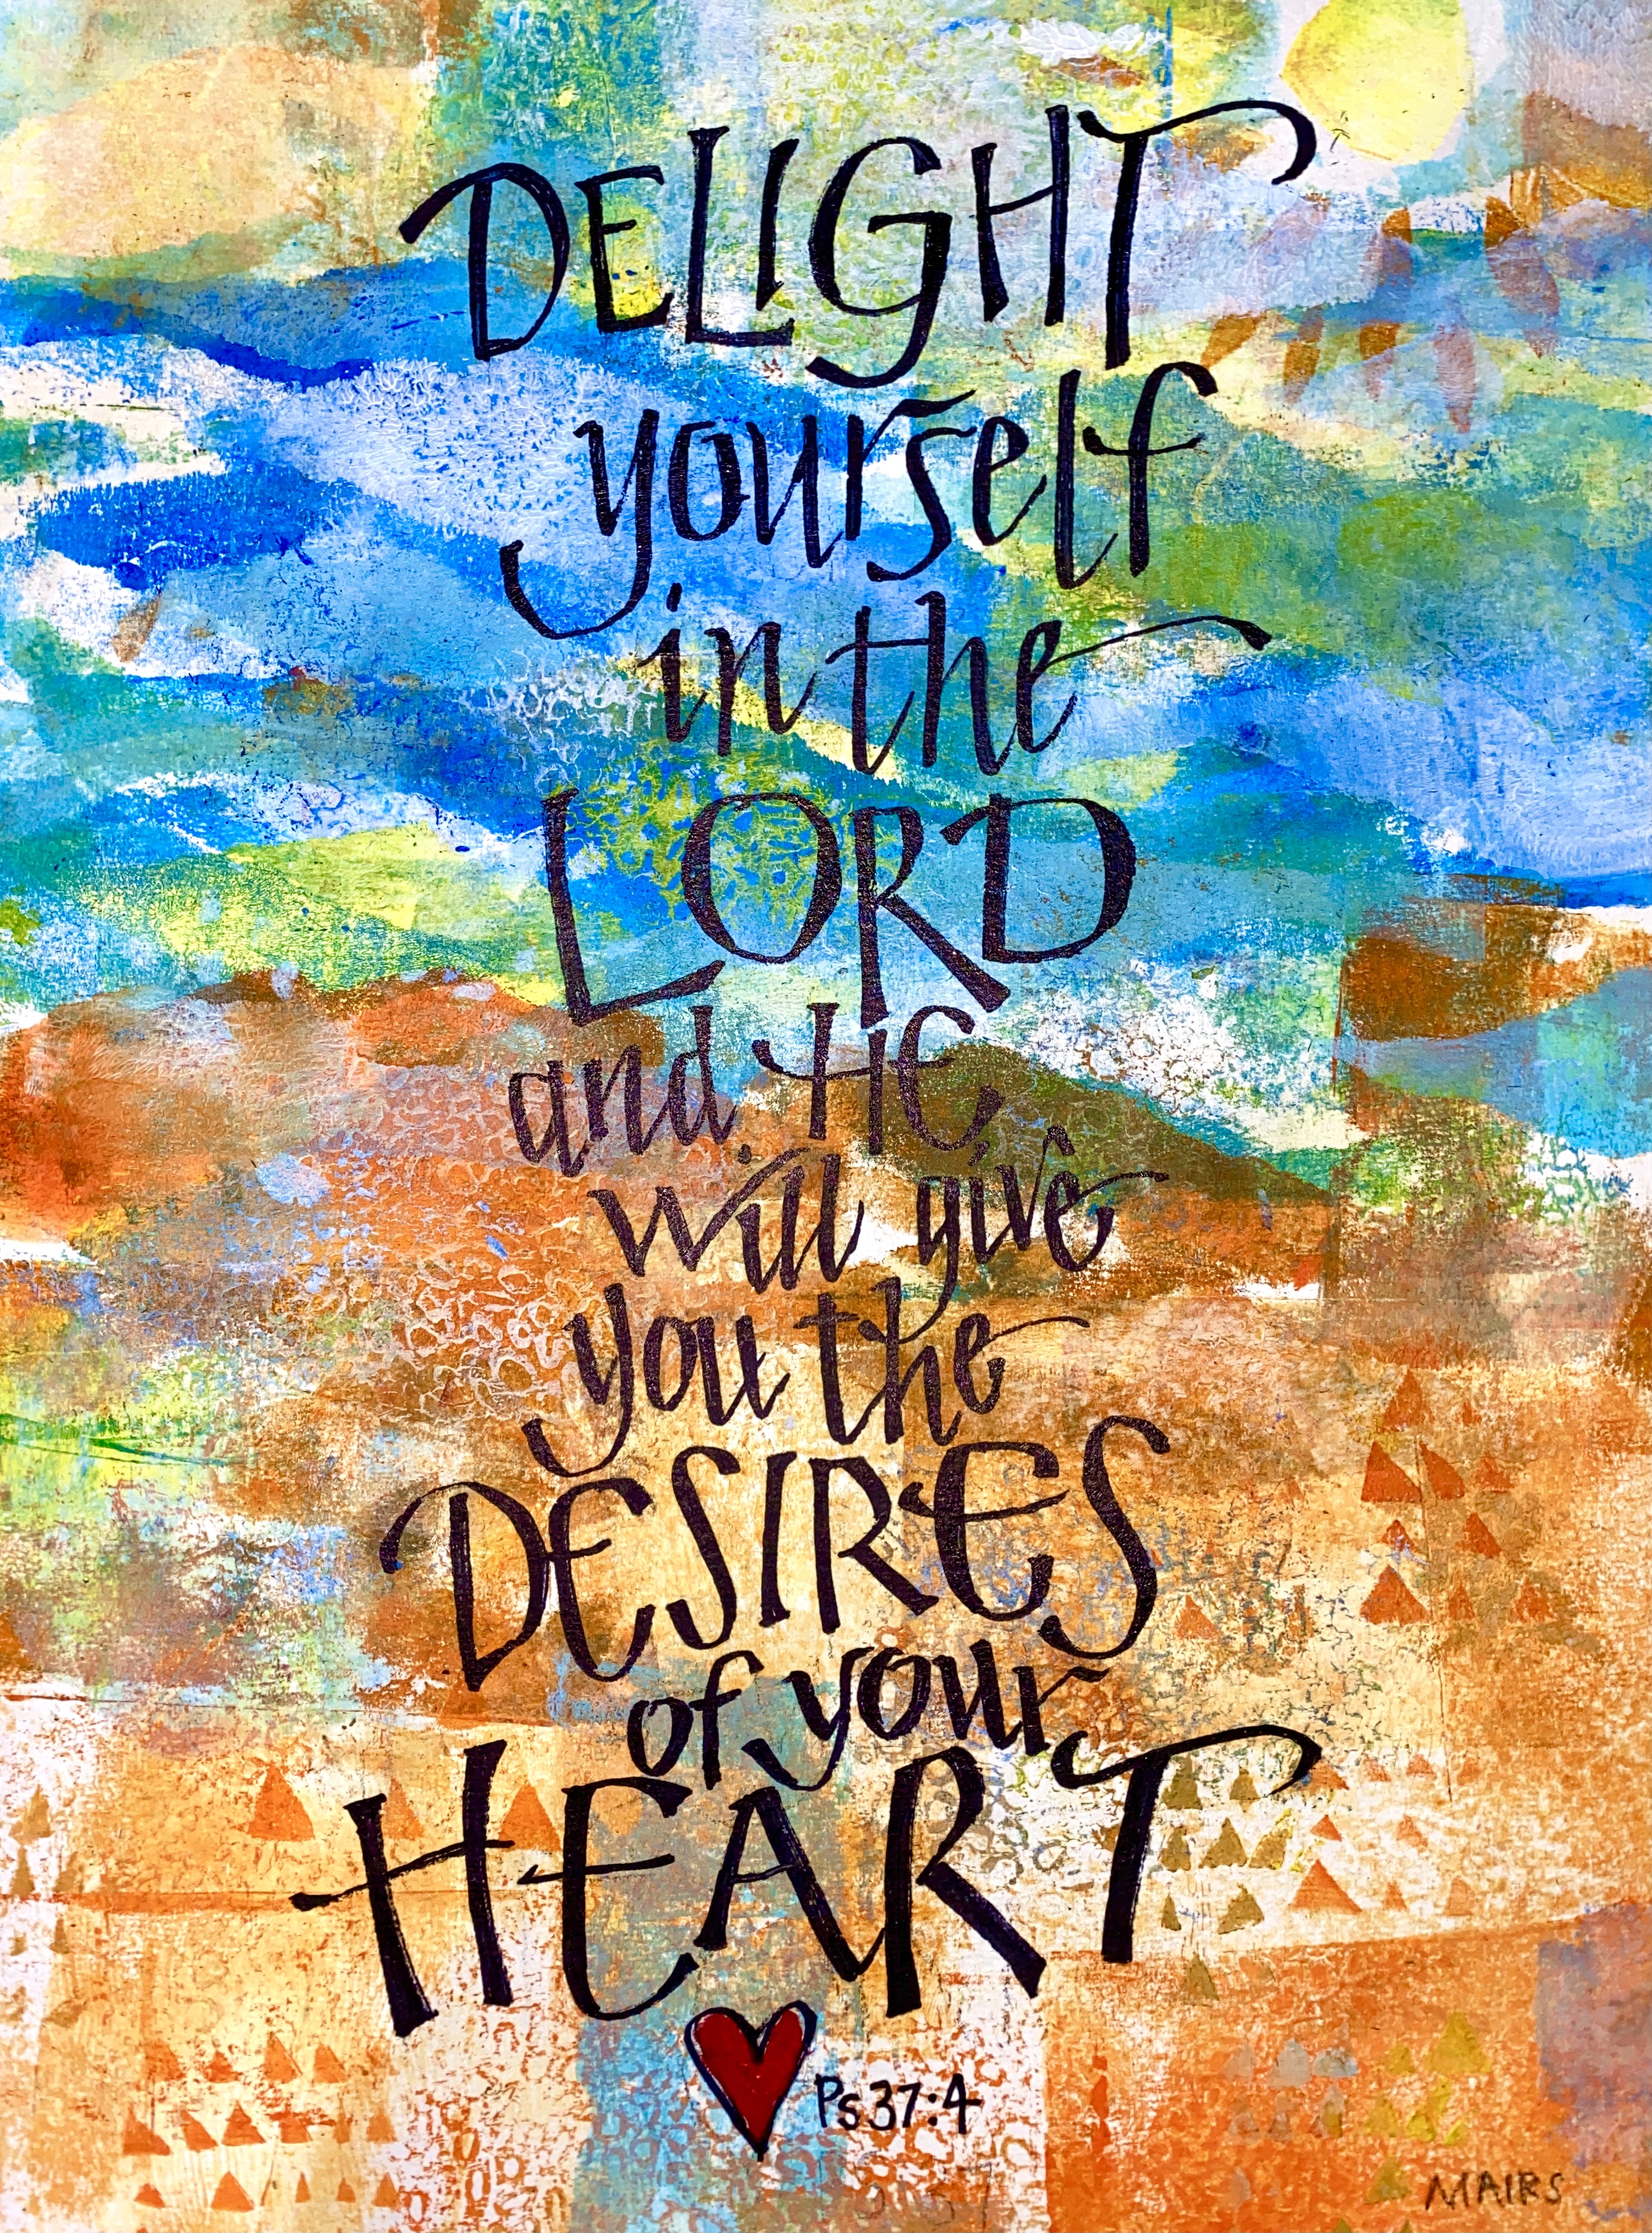 DELIGHT
yourself
in the
LORD
and HE
will give
you the
DESIRES
of your
HEART
Ps 37:4
MAIRS